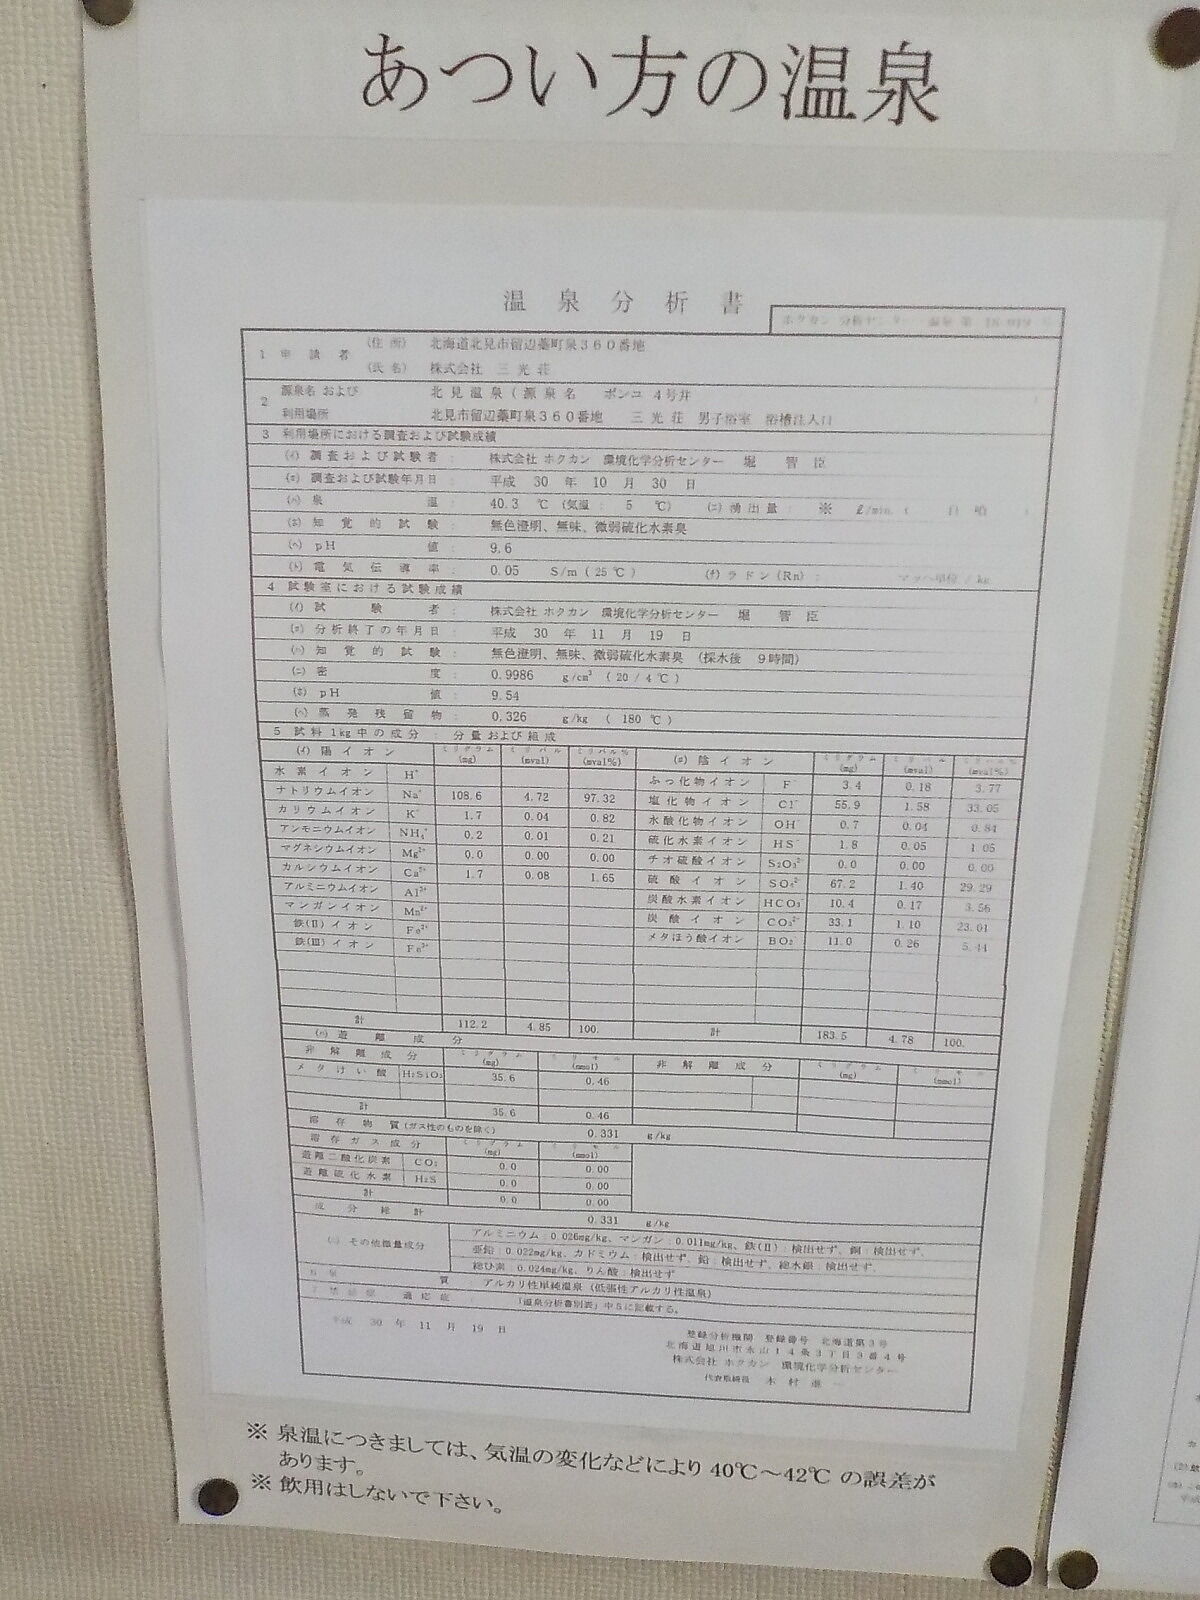 あつい方の温泉
温泉分析書
ホクカン 分析センター
1 申請者 (住所) 北海道北見市留辺蘂町泉360番地
(氏名) 株式会社 三光荘
2 源泉名 および 北見温泉(源泉名 ポンユ 4号井
利用場所 北見市留辺蘂町泉360番地 三光荘 男子浴室 浴槽注入口
3 利用場所における調査および試験成績
(ｲ) 調査および試験者: 株式会社 ホクカン 環境化学分析センター 堀 智臣
(ﾛ) 調査および試験年月日: 平成 30 年 10 月 30 日
(ﾊ) 泉温: 40.3 ℃ (気温: 5 ℃) (ﾆ) 湧出量: ※ ℓ/min. ( 自噴 )
(ﾎ) 知覚的試験: 無色澄明、無味、微弱硫化水素臭
(ﾍ) pH値: 9.6
(ﾄ) 電気伝導率: 0.05 S/m (25℃) (ﾁ) ラドン(Rn): マッヘ単位/kg
4 試験室における試験成績
(ｲ) 試験者: 株式会社 ホクカン 環境化学分析センター 堀 智臣
(ﾛ) 分析終了の年月日: 平成 30 年 11 月 19 日
(ﾊ) 知覚的試験: 無色澄明、無味、微弱硫化水素臭 (採水後 9時間)
(ﾆ) 密度: 0.9986 g/cm³ (20/4℃)
(ﾎ) pH値: 9.54
(ﾍ) 蒸発残留物: 0.326 g/kg (180℃)
5 試料1kg中の成分: 分量および組成
(ｲ) 陽イオン ミリグラム(mg) ミリバル(mval) ミリバル%(mval%) (ﾛ) 陰イオン ミリグラム(mg) ミリバル(mval) ミリバル%(mval%)
水素イオン H⁺ ふっ化物イオン F⁻ 3.4 0.18 3.77
ナトリウムイオン Na⁺ 108.6 4.72 97.32 塩化物イオン Cl⁻ 55.9 1.58 33.05
カリウムイオン K⁺ 1.7 0.04 0.82 水酸化物イオン OH⁻ 0.7 0.04 0.84
アンモニウムイオン NH₄⁺ 0.2 0.01 0.21 硫化水素イオン HS⁻ 1.8 0.05 1.05
マグネシウムイオン Mg²⁺ 0.0 0.00 0.00 チオ硫酸イオン S₂O₃²⁻ 0.0 0.00 0.00
カルシウムイオン Ca²⁺ 1.7 0.08 1.65 硫酸イオン SO₄²⁻ 67.2 1.40 29.29
アルミニウムイオン Al³⁺ 炭酸水素イオン HCO₃⁻ 10.4 0.17 3.56
マンガンイオン Mn²⁺ 炭酸イオン CO₃²⁻ 33.1 1.10 23.01
鉄(Ⅱ)イオン Fe²⁺ メタほう酸イオン BO₂⁻ 11.0 0.26 5.44
鉄(Ⅲ)イオン Fe³⁺
計 112.2 4.85 100. 計 183.5 4.78 100.
(ﾊ) 遊離成分
非解離成分 ミリグラム(mg) ミリモル(mmol) 非解離成分 ミリグラム(mg) ミリモル(mmol)
メタけい酸 H₂SiO₃ 35.6 0.46
計 35.6 0.46
溶存物質(ガス性のものを除く) 0.331 g/kg
溶存ガス成分 ミリグラム(mg) ミリモル(mmol)
遊離二酸化炭素 CO₂ 0.0 0.00
遊離硫化水素 H₂S 0.0 0.00
計 0.0 0.00
成分総計 0.331 g/kg
(ﾆ) その他微量成分 アルミニウム:0.026mg/kg、マンガン:0.011mg/kg、鉄(Ⅱ):検出せず、銅:検出せず、
亜鉛:0.022mg/kg、カドミウム:検出せず、鉛:検出せず、総水銀:検出せず、
総ひ素:0.024mg/kg、りん酸:検出せず
6 泉質 : アルカリ性単純温泉 (低張性アルカリ性温泉)
7 禁忌症 適応症 : 「温泉分析書別表」中5に記載する。
平成 30 年 11 月 19 日
登録分析機関 登録番号 北海道第3号
北海道旭川市永山14条3丁目3番4号
株式会社 ホクカン 環境化学分析センター
代表取締役 木村
※ 泉温につきましては、気温の変化などにより 40℃～42℃ の誤差が
あります。
※ 飲用はしないで下さい。